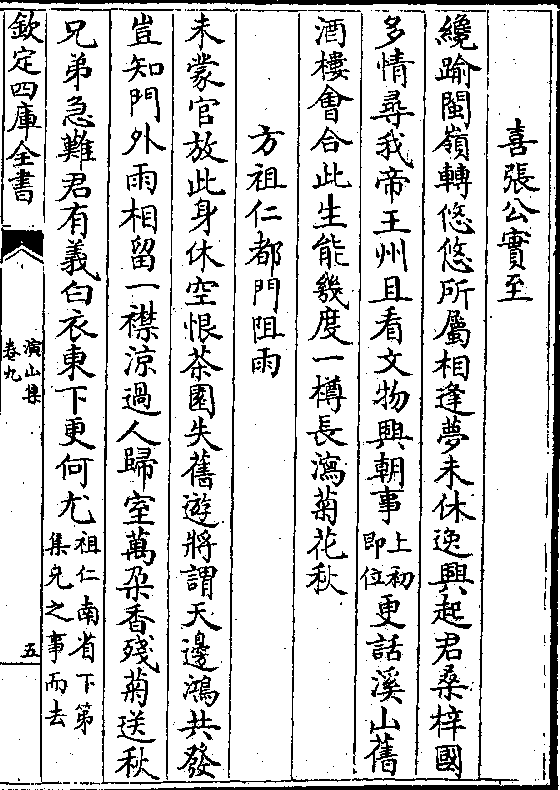 喜張公實至
纔踰閩嶺轉悠悠所屬相逢夢未休逸興起君桑梓國
多情尋我帝王州且看文物興朝事上初即位更話溪山舊
酒樓會合此生能幾度一樽長瀉菊花秋
方祖仁都門阻雨
未蒙官放此身休空恨茶園失舊遊將謂天邊鴻共發
豈知門外雨相留一襟涼過人歸室萬朶香殘菊送秋
兄弟急難君有義白衣東下更何尤祖仁南省下第集兄之事而去
欽定四庫全書
演山集
卷九
五